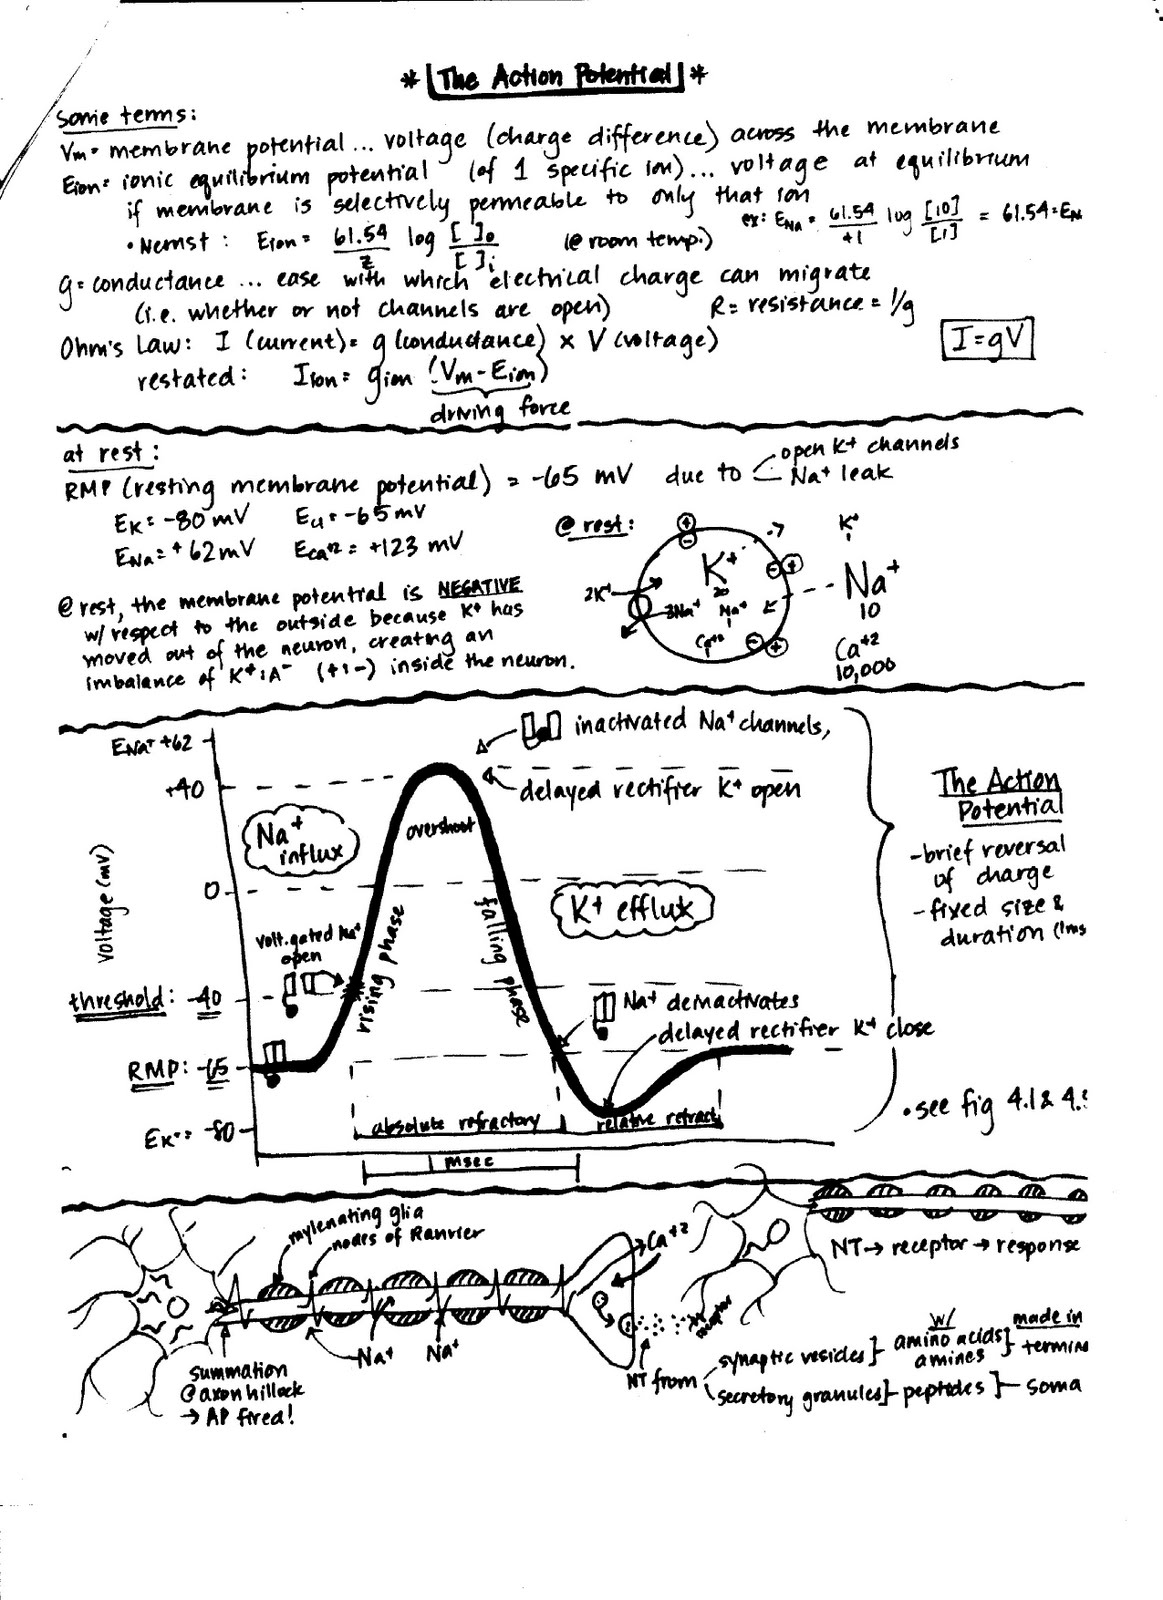 * The Action Potential *
Some terms:
Vm = membrane potential ... voltage (charge difference) across the membrane
Eion = ionic equilibrium potential (of 1 specific ion) ... voltage at equilibrium
if membrane is selectively permeable to only that ion
• Nernst : Eion = 61.54/z log [ ]o/[ ]i (@ room temp.)
ex: ENa = 61.54/+1 log [10]/[1] = 61.54 = EN
g = conductance ... ease with which electrical charge can migrate
(i.e. whether or not channels are open) R = resistance = 1/g
Ohm's Law: I (current) = g (conductance) x V (voltage)
I = gV
restated: Iion = gion (Vm - Eion)
driving force
at rest:
RMP (resting membrane potential) = -65 mV due to < open K+ channels
Na+ leak
EK = -80 mV ECl = -65 mV
ENa = +62 mV ECa+2 = +123 mV
@ rest:
K+
1
K+
20
2K+
3Na+
Na+
1
Ca+2
Na+
10
Ca+2
10,000
@ rest, the membrane potential is NEGATIVE
w/ respect to the outside because K+ has
moved out of the neuron, creating an
imbalance of K+:A- (+:-) inside the neuron.
ENa+ +62
inactivated Na+ channels,
+40
delayed rectifier K+ open
Na+
influx
overshoot
voltage (mv)
0
K+ efflux
volt.gated Na+
open
rising phase
falling phase
threshold: -40
Na+ deinactivates
delayed rectifier K+ close
RMP: -65
EK+= -80
absolute refractory
relative refract.
1 msec
The Action
Potential
-brief reversal
of charge
-fixed size &
duration (1ms
• see fig 4.1 & 4.
mylenating glia
nodes of Ranvier
Ca+2
NT → receptor → response
Na+
Na+
receptor
summation
@ axon hillock
→ AP fired!
NT from
synaptic vesicles } w/ amino acids
amines } made in
termina
secretory granules } peptides } soma